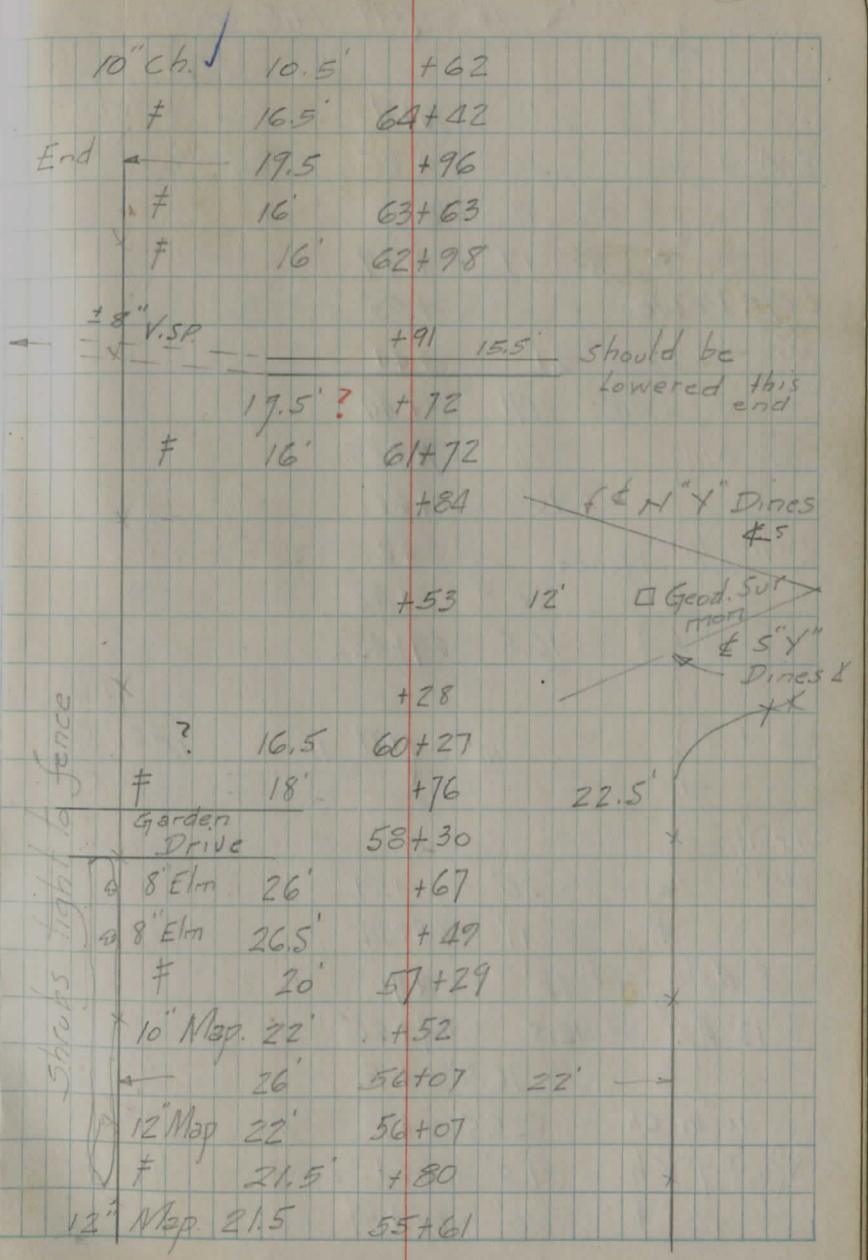 10" Ch. 10.5' +62
ǂ 16.5' 64+42
End 19.5 +96
ǂ 16' 63+63
ǂ 16' 62+98
±8" V.SP. +91 15.5' should be
lowered this
end
19.5' ? +72
ǂ 16' 61+72
+84 ₵ N "Y" Dines
+53 12' Geod. Sur
mon
₵ S "Y"
Dines
+28
? 16.5 60+27
ǂ 18' +76 22.5'
Garden
Drive 58+30
8" Elm 26' +67
8" Elm 26.5' +49
ǂ 20' 57+29
10" Map. 22' +52
26' 56+07 22'
12" Map 22' 56+07
ǂ 21.5' +80
12" Map. 21.5 55+61
Shrubs tight to fence